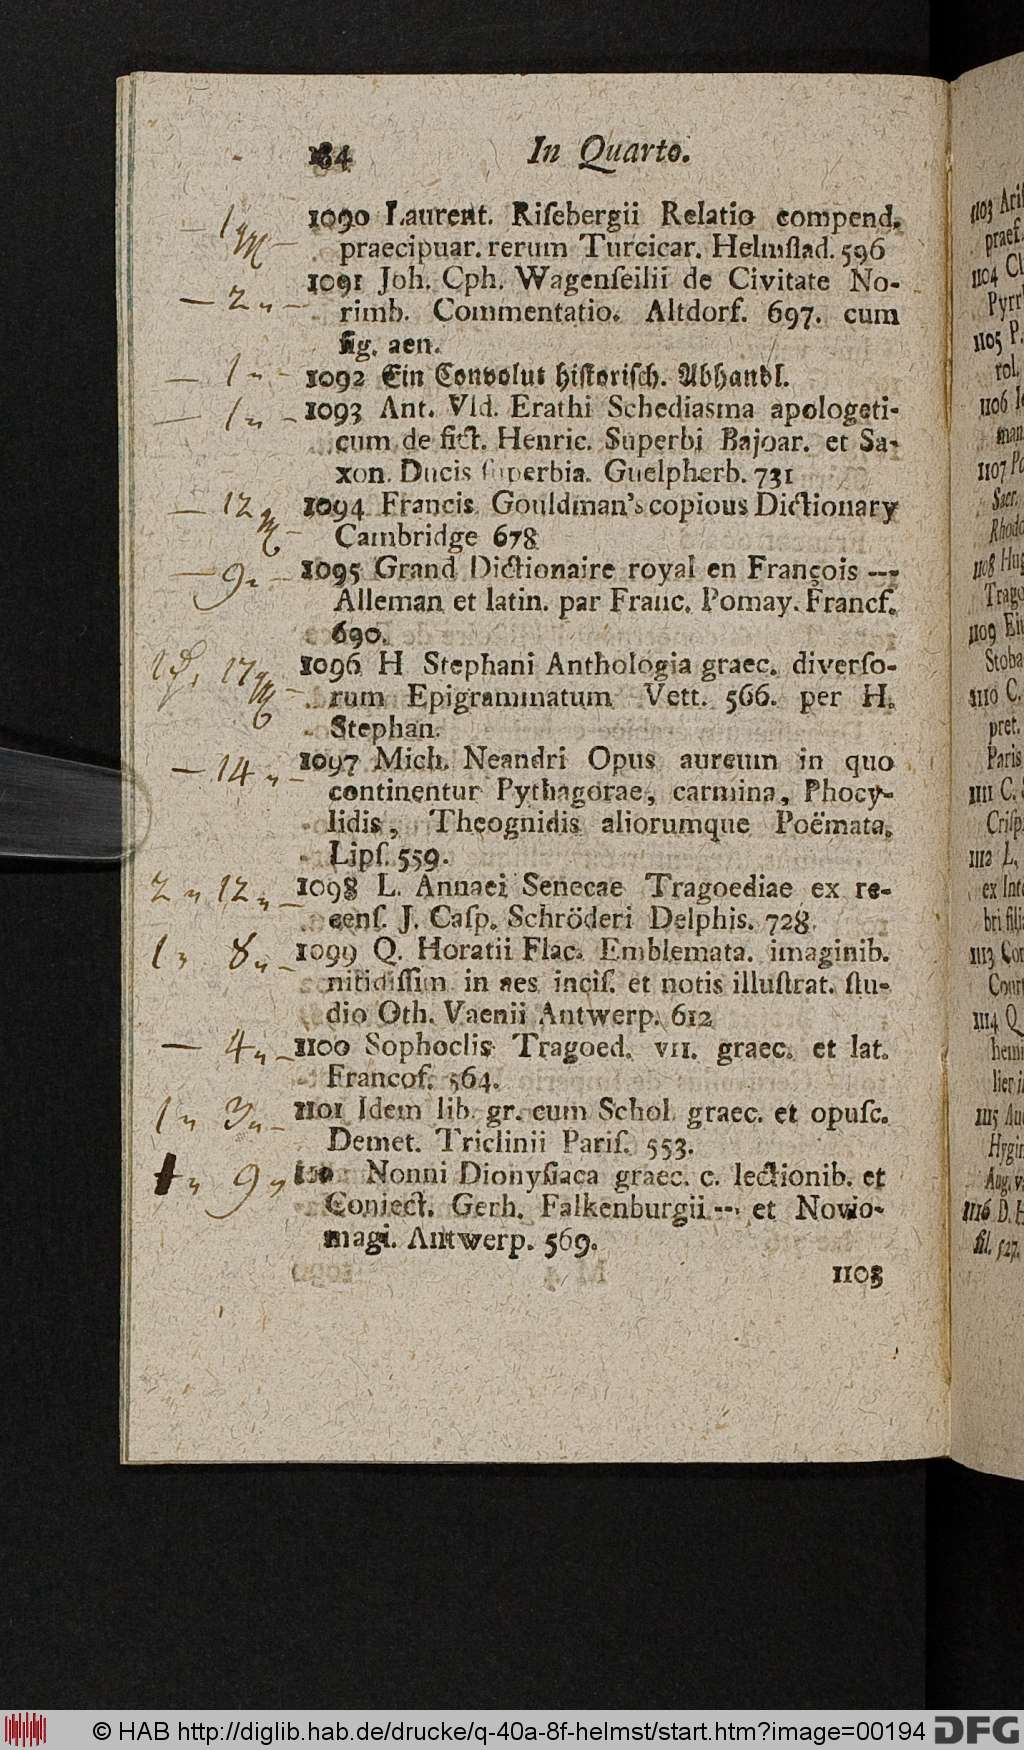 184 In Quarto.
— 1 gg — 1090 Laurent. Riſebergii Relatio compend.
praecipuar. rerum Turcicar. Helmſtad. 596
— 2 " — 1091 Joh. Cph. Wagenſeilii de Civitate No-
rimb. Commentatio. Altdorf. 697. cum
fig. aen.
— 1 " - 1092 Ein Convolut hiſtoriſch. Abhandl.
— 1 " - 1093 Ant. Vld. Erathi Schediasma apologeti-
cum de fict. Henric. Superbi Bajoar. et Sa-
xon. Ducis ſuperbia. Guelpherb. 731
— 12 gg - 1094 Francis Gouldman's copious Dictionary
Cambridge 678
— 9 " - 1095 Grand Dictionaire royal en François ---
Alleman et latin. par Franc. Pomay. Francf.
690.
17 gg - 1096 H Stephani Anthologia graec. diverſo-
rum Epigrammatum Vett. 566. per H.
Stephan.
— 14 " - 1097 Mich. Neandri Opus aureum in quo
continentur Pythagorae, carmina, Phocy-
lidis, Theognidis aliorumque Poëmata.
Lipſ. 559.
2 " 12 " - 1098 L. Annaei Senecae Tragoediae ex re-
cenſ. J. Caſp. Schröderi Delphis. 728.
1 " 8 " - 1099 Q. Horatii Flac. Emblemata. imaginib.
nitidiſſim in aes inciſ. et notis illuſtrat. ſtu-
dio Oth. Vaenii Antwerp. 612
— 4 " - 1100 Sophoclis Tragoed. VII. graec. et lat.
Francof. 564.
1 " 3 " - 1101 Idem lib. gr. cum Schol. graec. et opuſc.
Demet. Triclinii Pariſ. 553.
1 " 9 " Nonni Dionyſiaca graec. c. lectionib. et
Coniect. Gerh. Falkenburgii -- et Novio-
magi. Antwerp. 569.
1103
1103 Ari
praef.
1104 Cl
Pyrr
1105 P.
rol.
1106 Ie
man
1107 Po
Sacr.
Rhodo
1108 Hug
Trago
1109 Ei
Stoba
1110 C.
pret.
Paris
1111 C.
Criſp
1112 L.
ex Inte
bri fili
1113 Co
Court
1114 Q
hemi
lier i
1115 Au
Hygin
Aug. v
1116 D. H
fil. 527.
© HAB http://diglib.hab.de/drucke/q-40a-8f-helmst/start.htm?image=00194 DFG